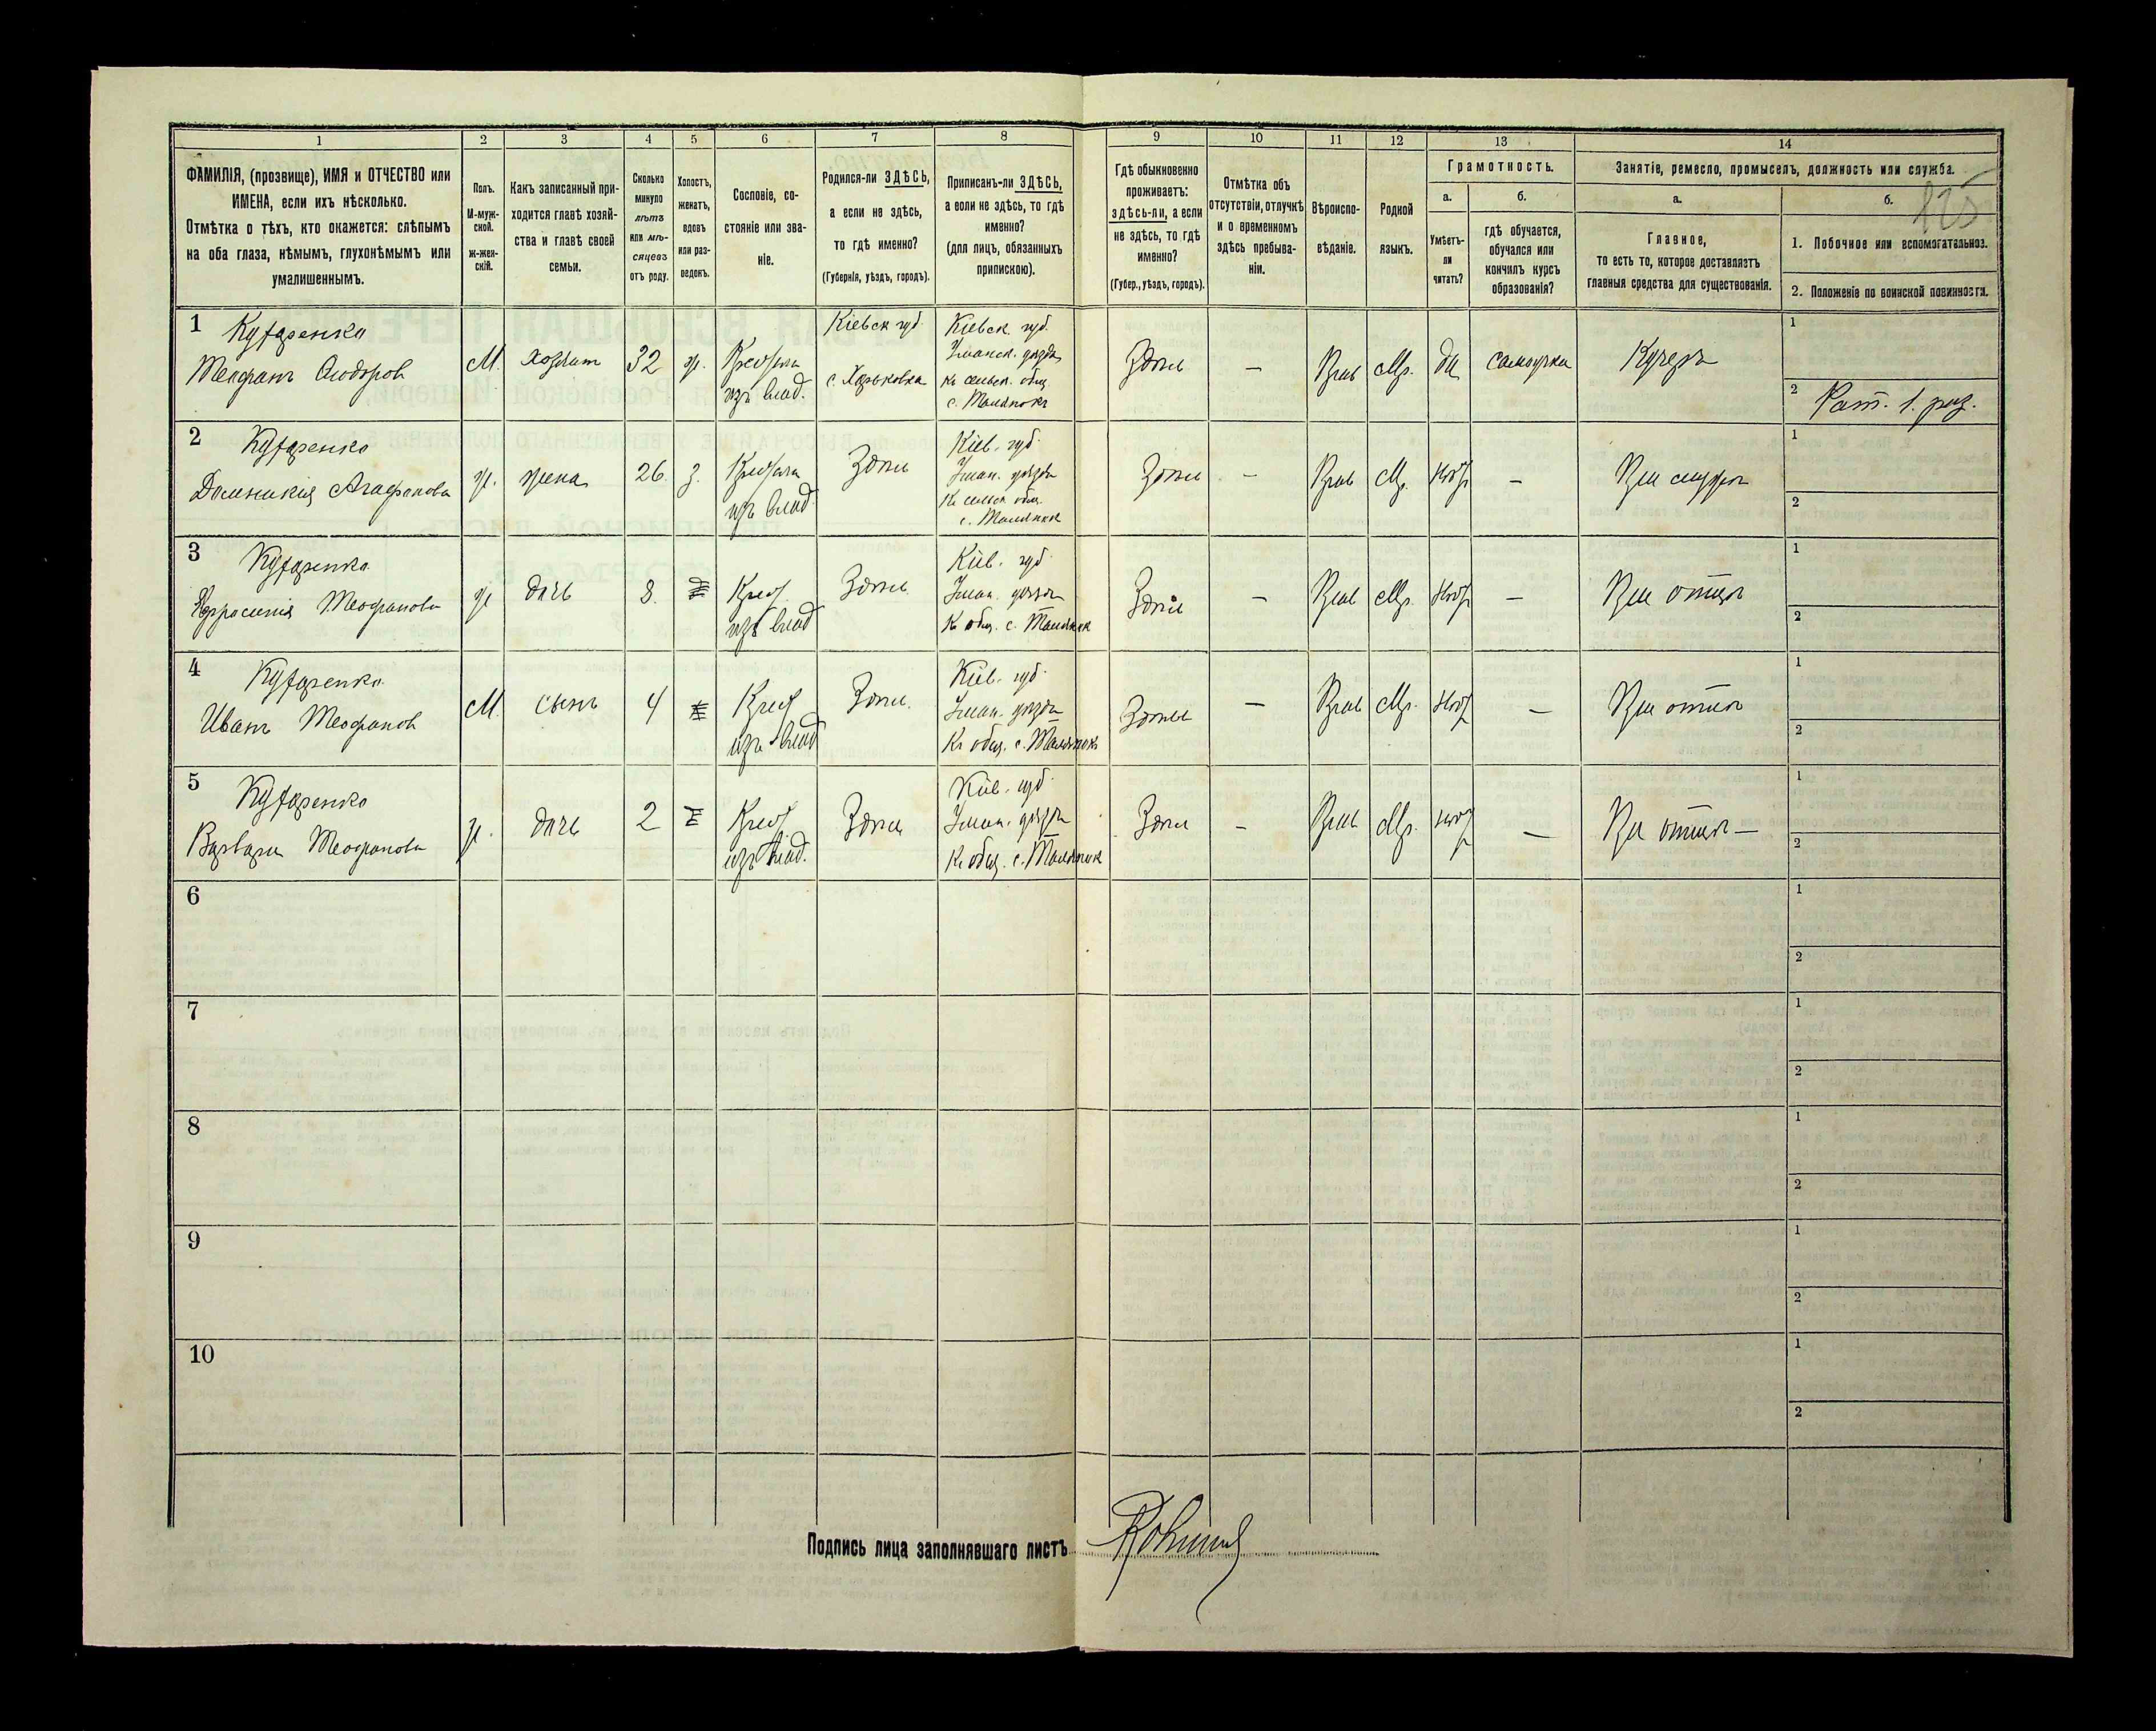 1
2
3
4
5
6
7
8
9
10
11
12
13
14
ФАМИЛІЯ, (прозвище), ИМЯ и ОТЧЕСТВО или
ИМЕНА, если ихъ нѣсколько.
Отмѣтка о тѣхъ, кто окажется: слѣпымъ
на оба глаза, нѣмымъ, глухонѣмымъ или
умалишеннымъ.
Полъ.
М-муж-
ской.
ж-жен-
скій.
Какъ записанный при-
ходится главѣ хозяй-
ства и главѣ своей
семьи.
Сколько
минуло
лѣтъ
или мѣ-
сяцевъ
отъ роду.
Холостъ,
женатъ,
вдовъ
или раз-
веденъ.
Сословіе, со-
стояніе или зва-
ніе.
Родился-ли ЗДѢСЬ,
а если не здѣсь,
то гдѣ именно?
(Губернія, уѣздъ, городъ).
Приписанъ-ли ЗДѢСЬ,
а если не здѣсь, то гдѣ
именно?
(для лицъ, обязанныхъ
припискою).
Гдѣ обыкновенно
проживаетъ:
здѣсь-ли, а если
не здѣсь, то гдѣ
именно?
(Губер., уѣздъ, городъ).
Отмѣтка объ
отсутствіи, отлучкѣ
и о временномъ
здѣсь пребыва-
ніи.
Вѣроиспо-
вѣданіе.
Родной
языкъ.
Грамотность.
а.
Умѣетъ-
ли
читать?
б.
гдѣ обучается,
обучался или
кончилъ курсъ
образованія?
Занятіе, ремесло, промыселъ, должность или служба.
а.
Главное,
то есть то, которое доставляетъ
главныя средства для существованія.
б.
125
1. Побочное или вспомогательное.
2. Положеніе по воинской повинности.
1
Кутаренко
Теофанъ Ѳеодоров
М.
хозяинъ
32
ж.
Крестьян
изъ влад.
Кіевск губ.
с. Харьковка
Кіевск. губ.
Уманск. уѣзда
къ сельск. общ.
с. Тальянокъ
Здѣсь
—
Прав
Мр.
да
самоучка
Кучеръ
1
2
Рат. 1. раз.
2
Кутаренко
Домникія Агафонова
ж.
жена
26.
з.
Крестьян
изъ влад.
Здѣсь
Кіев. губ.
Уман. уѣзда
къ сельск общ.
с. Тальянок
Здѣсь
—
Прав
Мр.
—
При
1
2
3
Кутаренко
Ефросинія Теофанова
ж
дочь
8.
Крест.
изъ влад
Здѣсь
Кіев. губ.
Уман. уѣзда
къ общ. с. Тальянок
Здѣсь
—
Прав
Мр.
—
При отцѣ
1
2
4
Кутаренко
Иванъ Теофанов
М.
сынъ
4
Крест
изъ влад
Здѣсь.
Кіев. губ.
Уман. уѣзда
къ общ. с. Тальянокъ
Здѣсь
—
Прав
Мр.
—
При отцѣ
1
2
5
Кутаренко
Варвара Теофанова
ж.
дочь
2
Крест.
изъ влад.
Здѣсь
Кіев. губ.
Уман. уѣзда
къ общ. с. Тальянок
Здѣсь
—
Прав
Мр.
—
При отцѣ —
1
2
6
1
2
7
1
2
8
1
2
9
1
2
10
1
2
Подпись лица заполнявшаго листъ